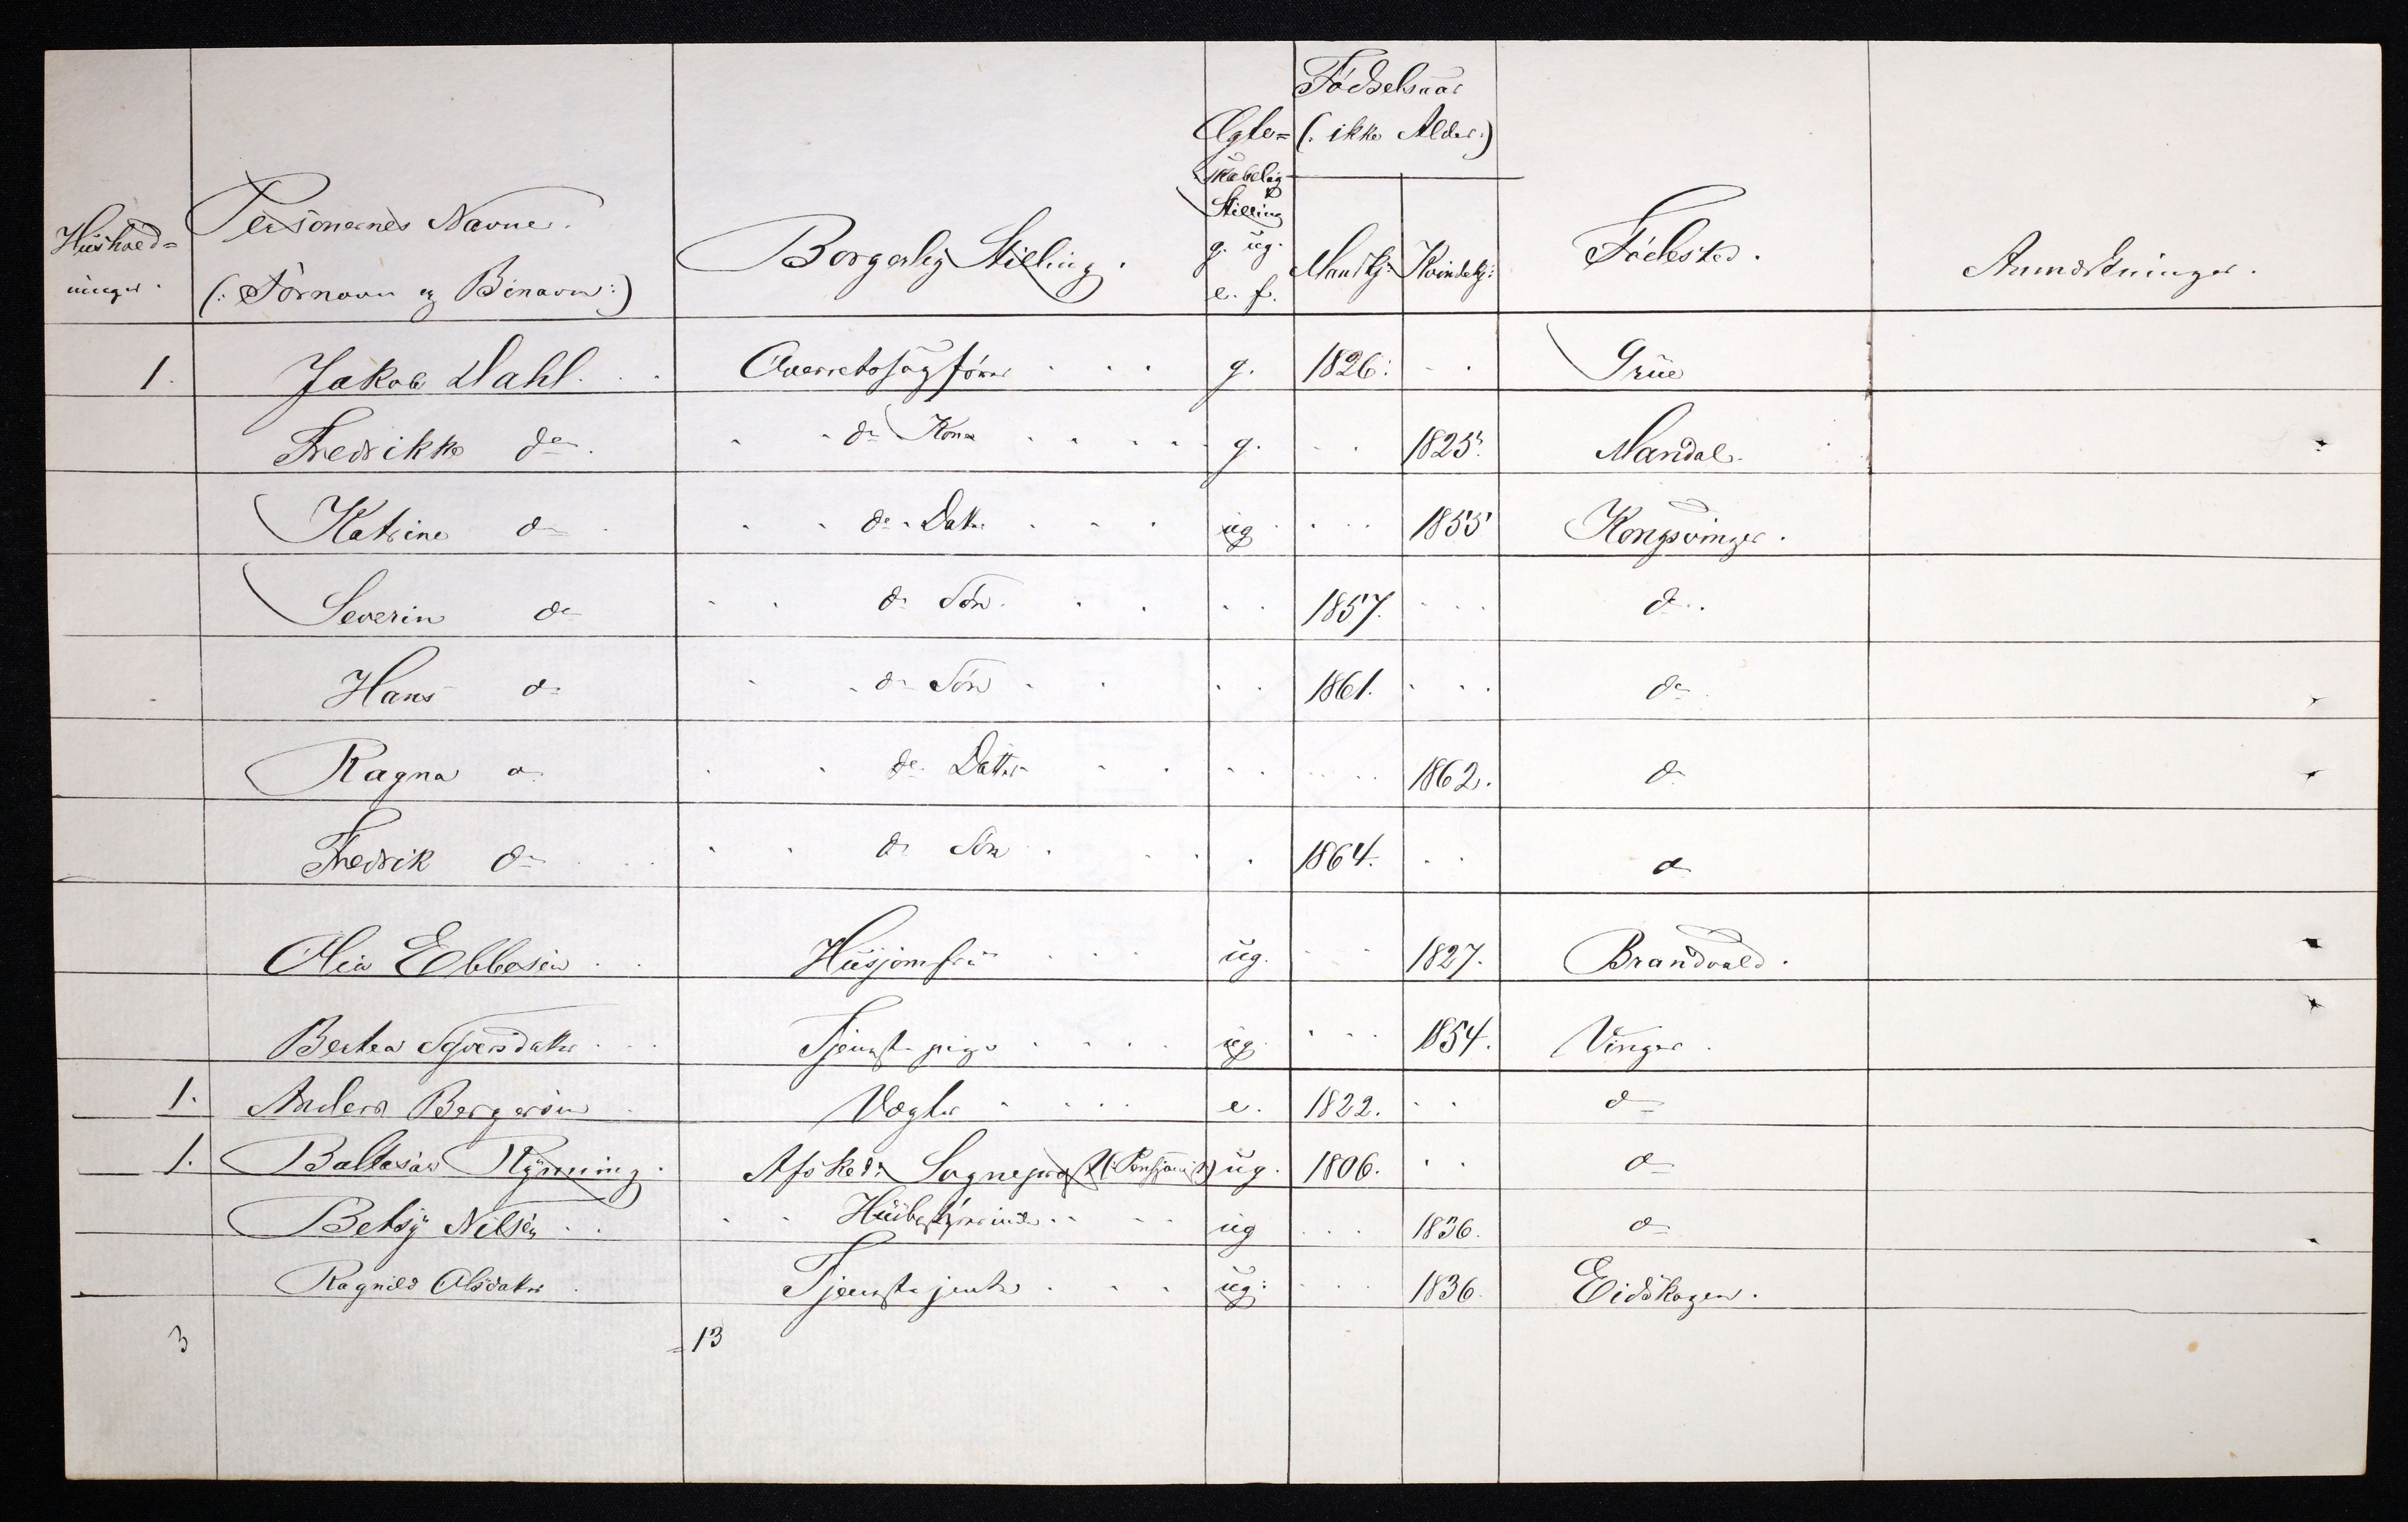 Fødselsaar
Ægte= (: ikke Alder:)
skabelig
Stilling
Hushold= Personernes Navne. Borgerlig Stilling. g. ug. Mandkj: Kvindekj: Fødested. Anmærkninger.
ninger. (: Fornavn og Binavn:) e. f.
1. Jakob Dahl. Overretssagfører g. 1826. Grue
Fredrikke do. do Kone g. 1825. Mandal.
Katrine do do Datr. ug 1855 Kongsvinger.
Severin do do Søn. 1857. do
Hans do do Søn 1861. do
Ragna do do Datter 1862. do
Fredrik do do Søn 1864. do
Olia Ebbesen Husjomfru ug. 1827. Brandvald.
Bertea Syversdatr Tjenestepige ug. 1854. Vinger.
1. Anders Bergersen Vægter e. 1822. do
1. Baltasar Rynning. Afsked. Sogneprest (: Pensjonist) ug. 1806. do
Betsy Nilsen Husbestyrerinde ug 1836. do
Ragnild Olsdatr Tjenestejente ug: 1836. Eidskogen.
3 =13